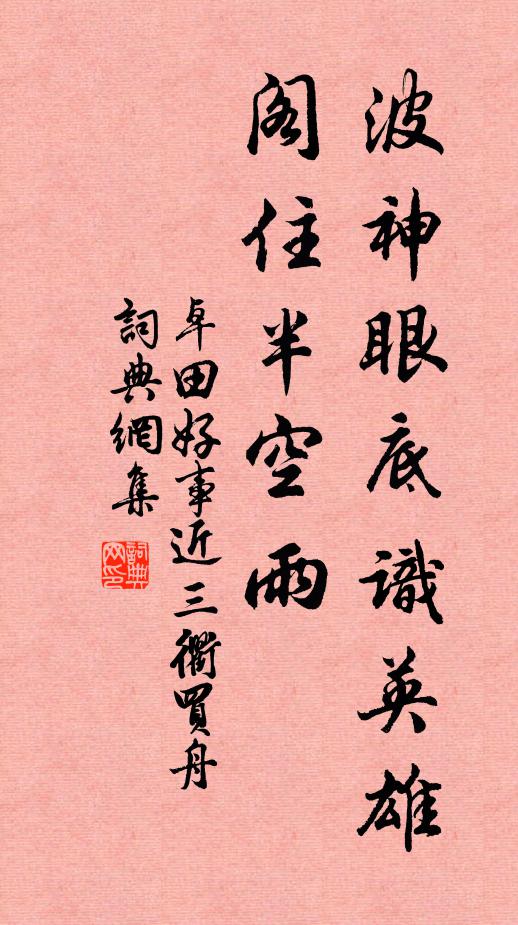 波神眼底識英雄
閣住半空雨
卓田好事近三衢買舟
詞典網集
詞典網印